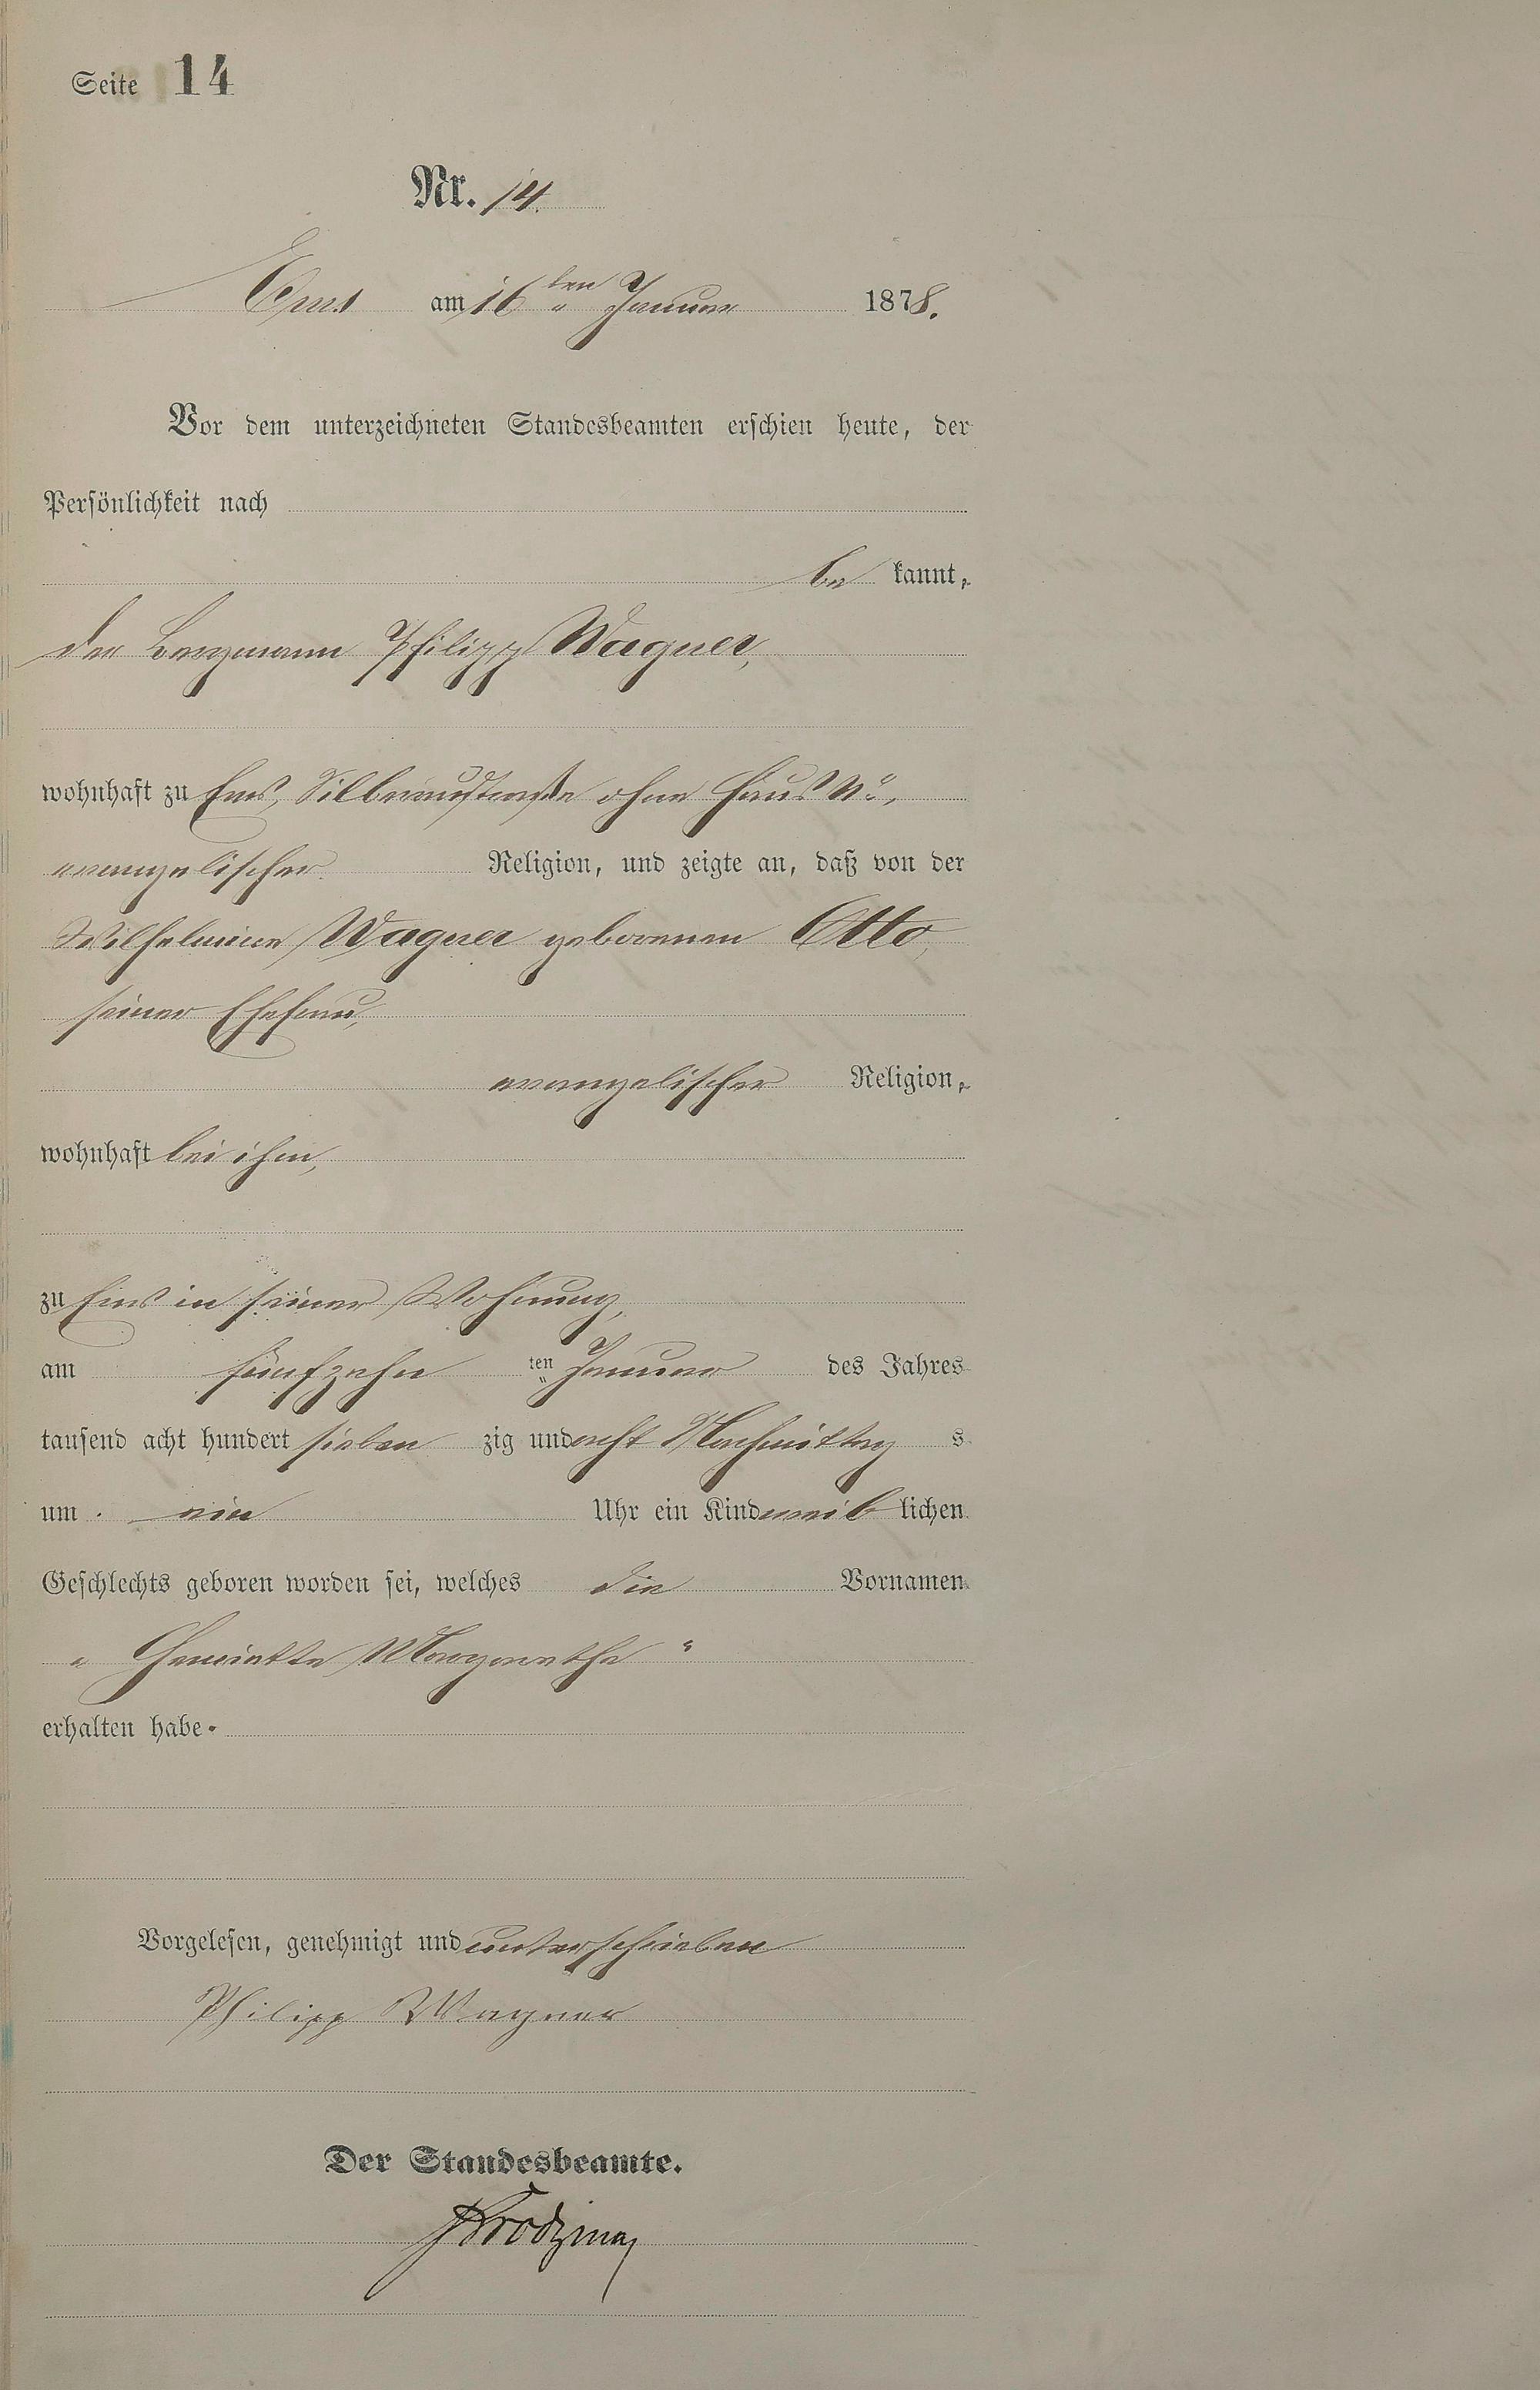 Seite 14
Nr. 14.
Ems am 16ten Januar 1878.
Vor dem unterzeichneten Standesbeamten erschien heute, der
Persönlichkeit nach
be kannt,
der Bergmann Philipp Wagner,
wohnhaft zu Ems, Silberaustraße ohne Haus No,
evangelischer Religion, und zeigte an, daß von der
Wilhelmine Wagner geborenen Otto,
seiner Ehefrau,
evangelischer Religion,
wohnhaft bei ihm,
zu Ems in seiner Wohnung,
am fünfzehn ten Januar des Jahres
tausend acht hundert sieben zig und acht Nachmittag s
um ein Uhr ein Kind weib lichen
Geschlechts geboren worden sei, welches die Vornamen
„ Henriette Margarethe “
erhalten habe.
Vorgelesen, genehmigt und unterschrieben
Philipp Wagner
Der Standesbeamte.